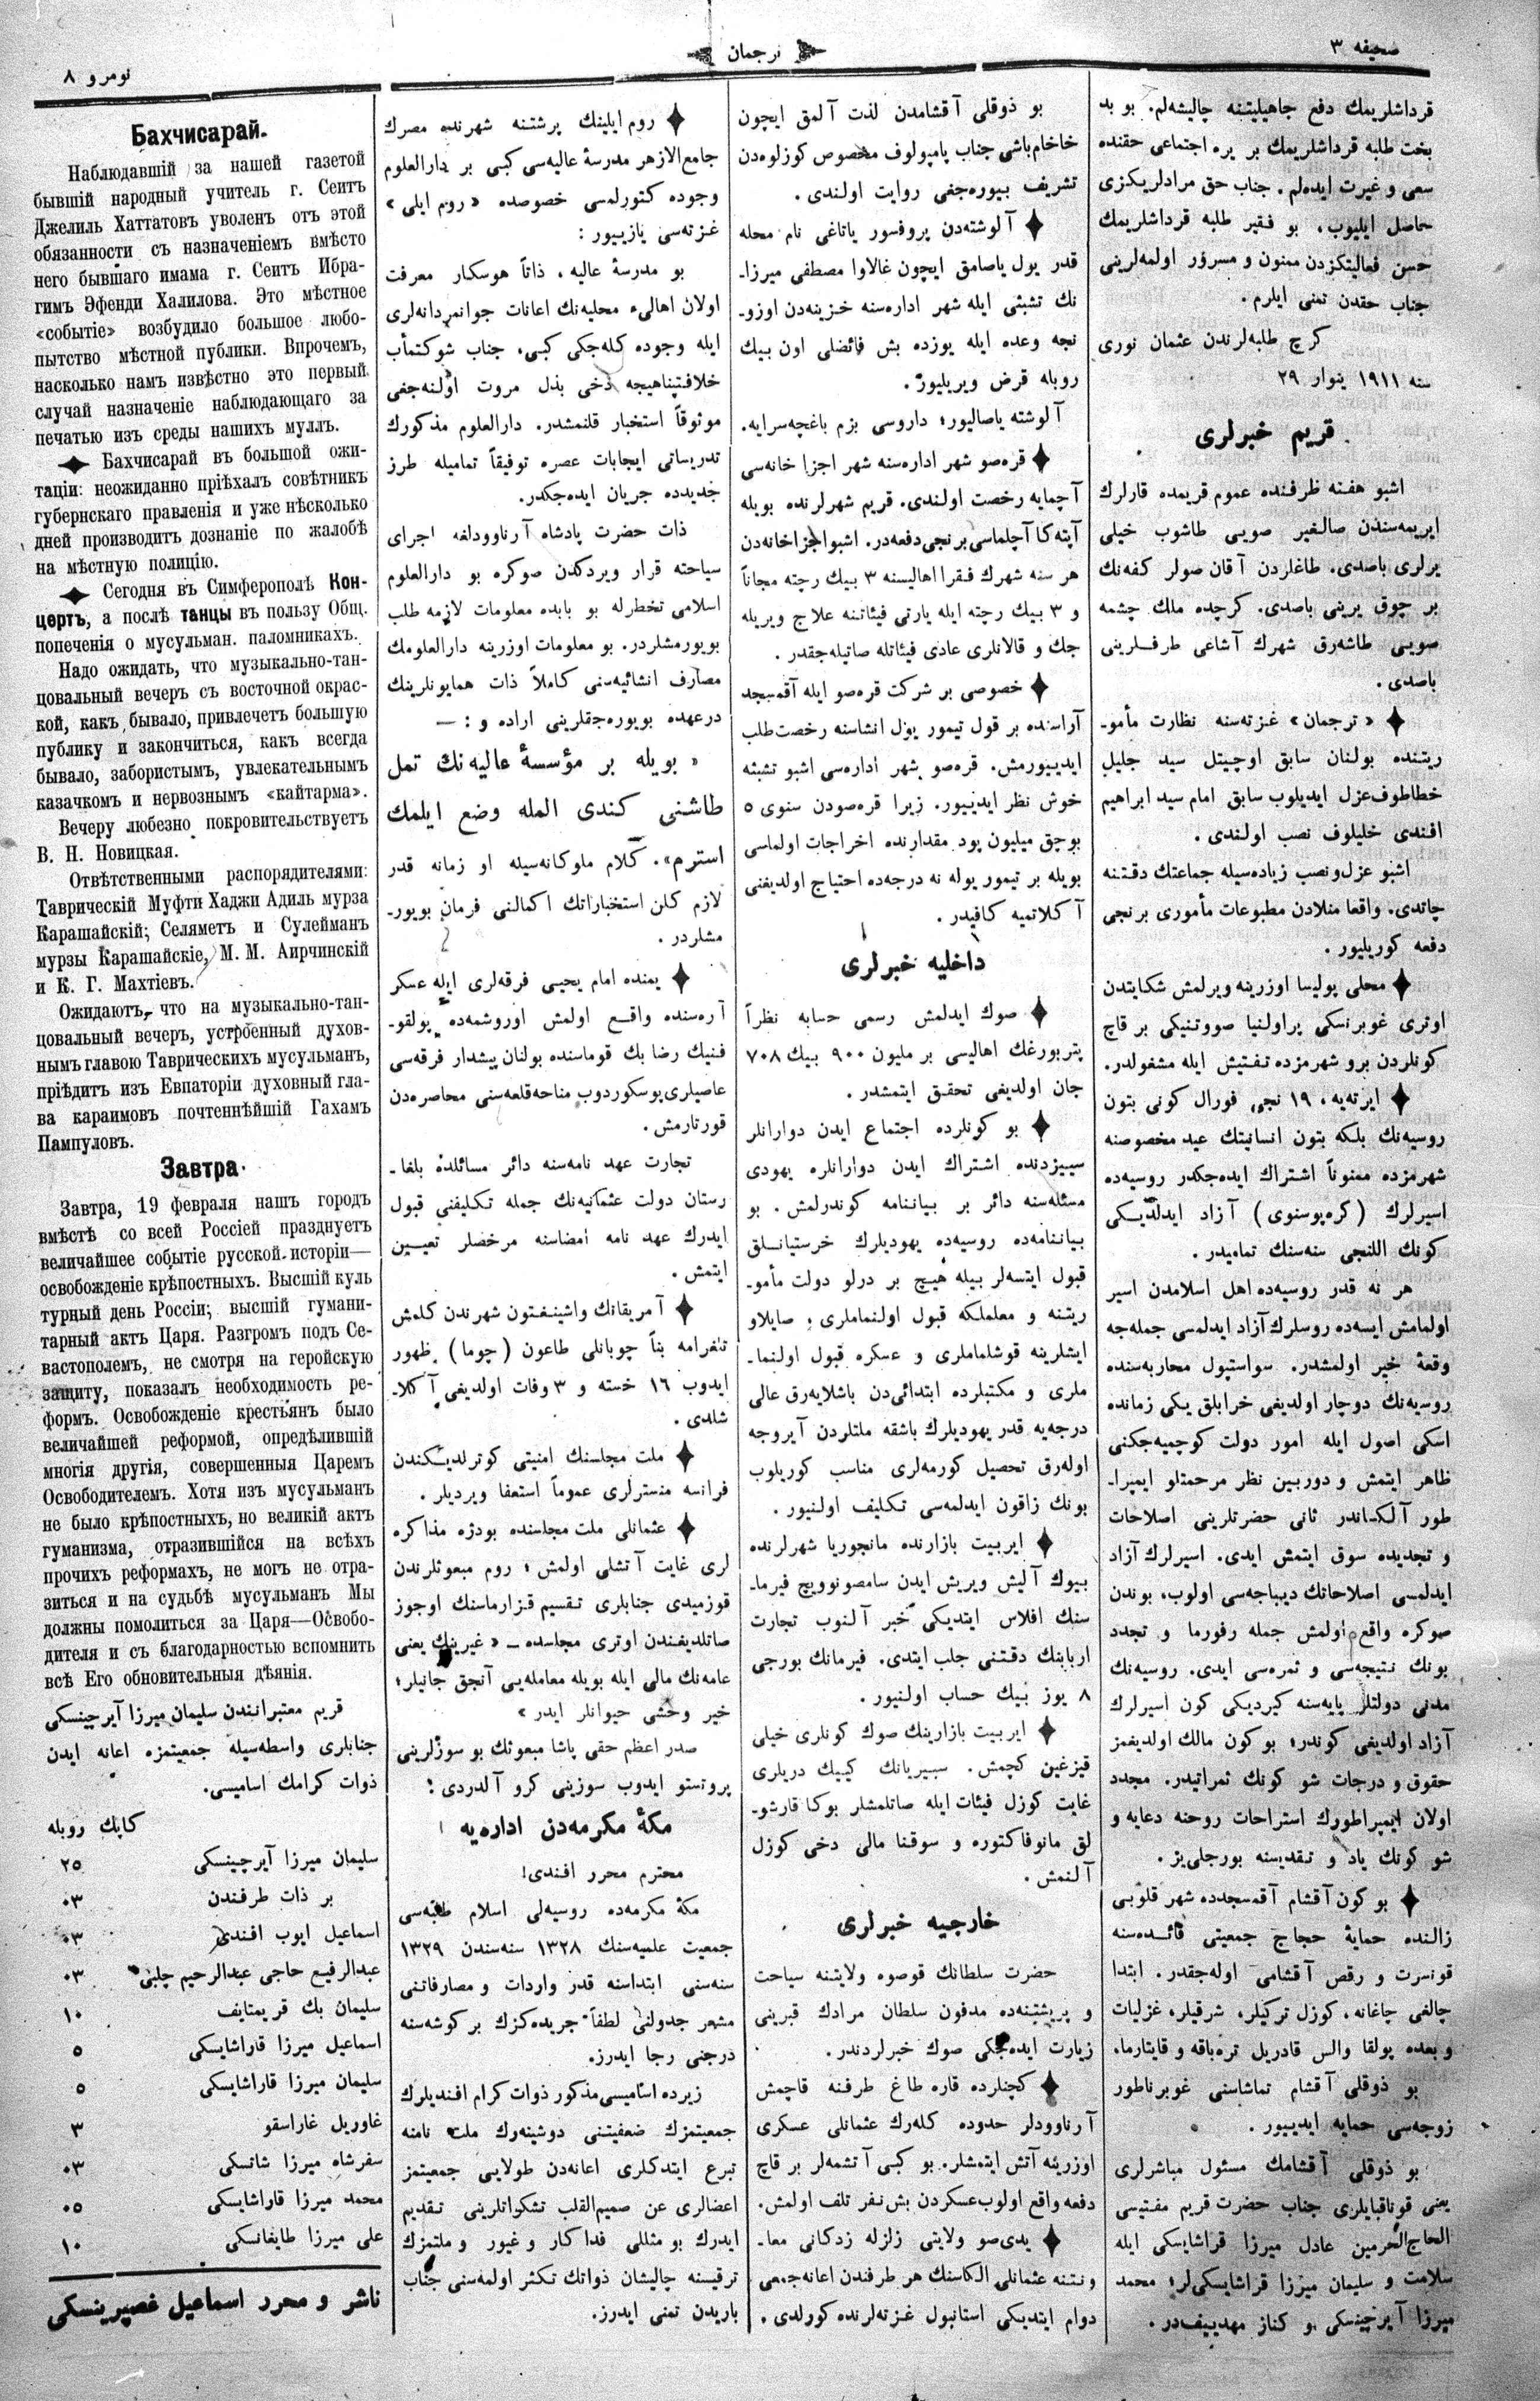 صحیفه ۳
ترجمان
نومرو ۸
قرداشلریمك دفع جاهیلیتنه چالیشه‌لم. بو بد
بخت طلبه قرداشلریمك بر یره اجتماعی حقنده
سعی و غیرت ایده‌لم. جناب حق مرادلریكزی
حاصل ایلیوب، بو فقیر طلبه قرداشلریمك
حسن فعالیتكزدن ممنون و مسرور اولمه‌لرینی
جناب حقدن تمنی ایلرم.
كرچ طلبه‌لرندن عثمان نوری
سنه ۱۹۱۱ ینوار ۲۹
قریم خبرلری
اشبو هفته ظرفنده عموم قریمده قارلرك
ایریمه‌سندن صالغیر صویی طاشوب خیلی
یرلری باصدی. طاغلردن آقان صولر كفه‌نك
بر چوق یرینی باصدی. كرچده ملك چشمه
صویی طاشه‌رق شهرك آشاغی طرفلرینی
باصدی.
« ترجمان » غزته‌سنه نظارت مأمو-
ریتنده بولنان سابق اوچیتل سید جلیل
خطاطوف عزل ایدیلوب سابق امام سید ابراهیم
افندی خلیلوف نصب اولندی.
اشبو عزل و نصب زیاده‌سیله جماعتك دقتنه
چاتدی. واقعا منلادن مطبوعات مأموری برنجی
دفعه كوریلیور.
محلی پولیسا اوزرینه ویرلمش شكایتدن
اوتری غوبرنسكی پراولنیا صووتنیكی بر قاچ
كونلردن برو شهرمزده تفتیش ایله مشغولدر.
ایرته‌یه، ۱۹ نجی فورال كونی بتون
روسیه‌نك بلكه بتون انسانیتك عید مخصوصنه
شهرمزده ممنوناً اشتراك ایده‌جكدر روسیه‌ده
اسیرلرك (كره‌پوسنوی) آزاد ایدلدیكی
كونك اللنجی سنه‌سنك تمامیدر.
هر نه قدر روسیه‌ده اهل اسلامدن اسیر
اولمامش ایسه‌ده روسلرك آزاد ایدلمسی جمله‌جه
وقعهٔ خیر اولمشدر. سواستپول محاربه‌سنده
روسیه‌نك دوچار اولدیغی خرابلق یكی زمانده
اسكی اصول ایله امور دولت كوچمیه‌جكنی
ظاهر ایتمش و دوربین نظر مرحمتلو ایمپرا-
طور آلكساندر ثانی حضرتلرینی اصلاحات
و تجدیده سوق ایتمش ایدی. اسیرلرك آزاد
ایدلمسی اصلاحاتك دیباجه‌سی اولوب، بوندن
صوكره واقع اولمش جمله رفورما و تجدد
بونك نتیجه‌سی و ثمره‌سی ایدی. روسیه‌نك
مدنی دولتلر پایه‌سنه كیردیكی كون اسیرلرك
آزاد اولدیغی كوندر؛ بو كون مالك اولدیغمز
حقوق و درجات شو كونك ثمراتیدر. مجدد
اولان ایمپراطورك استراحات روحنه دعایه و
شو كونك یاد و تقدیسنه بورجلی‌یز.
بو كون آقشام آقمسجدده شهر قلوبی
زالنده حمایهٔ حجاج جمعیتی فائده‌سنه
قونسرت و رقص آقشامی اوله‌جقدر. ابتدا
چالغی چاغانه، كوزل تركیلر، شرقیلر، غزلیات
و بعده پولقا والس قادریل تره‌باقه و قایتارما.
بو ذوقلی آقشام تماشاسنی غوبرناطور
زوجه‌سی حمایه ایدییور.
بو ذوقلی آقشامك مسئول مباشرلری
یعنی قوناقبایلری جناب حضرت قریم مفتیسی
الحاج الحرمین عادل میرزا قراشایسكی ایله
سلامت و سلیمان میرزا قراشایسكی‌لر؛ محمد
میرزا آیرچینسكی و كناز مهدییف‌در.
بو ذوقلی آقشامدن لذت آلمق ایچون
خاخام باشی جناب پامپولوف مخصوص كوزلوه‌دن
تشریف بیوره‌جغی روایت اولندی.
آلوشته‌دن پروفسور یاتاغی نام محله
قدر یول یاصامق ایچون غالاوا مصطفی میرزا-
نك تشبثی ایله شهر اداره‌سنه خزینه‌دن اوزو-
نجه وعده ایله یوزده بش فائضلی اون بیك
روبله قرض ویریلیور.
آلوشته یاصالیور؛ داروسی بزم باغچه‌سرایه.
قره‌صو شهر اداره‌سنه شهر اجزا خانه‌سی
آچمایه رخصت اولندی. قریم شهرلرنده بویله
آپته‌كا آچلماسی برنجی دفعه‌در. اشبو اجزاخانه‌دن
هر سنه شهرك فقرا اهالیسنه ۳ بیك رچته مجاناً
و ۳ بیك رچته ایله یارتی فیئاتنه علاج ویریله
جك و قالانلری عادی فیئاتله صاتیله‌جقدر.
خصوصی بر شركت قره‌صو ایله آقمسجد
آراسنده بر قول تیمور یول انشاسنه رخصت طلب
ایدییورمش. قره‌صو شهر اداره‌سی اشبو تشبثه
خوش نظر ایدییور. زیرا قره‌صودن سنوی ۵
بوچق میلیون پود مقدارنده اخراجات اولماسی
بویله بر تیمور یوله نه درجه‌ده احتیاج اولدیغنی
آكلاتمیه كافیدر.
داخلیه خبرلری
صوك ایدلمش رسمی حسابه نظراً
پتربورغك اهالیسی بر ملیون ۹۰۰ بیك ۷۰۸
جان اولدیغی تحقق ایتمشدر.
بو كونلرده اجتماع ایدن دوارانلر
سییزدنده اشتراك ایدن دوارانلره یهودی
مسئله‌سنه دائر بر بیاننامه كوندرلمش. بو
بیاننامه‌ده روسیه‌ده یهودیلرك خرستیانلق
قبول ایتسه‌لر بیله هیچ بر درلو دولت مأمو-
ریتنه و معلملكه قبول اولنماملری، صایلاو
ایشلرینه قوشلماملری و عسكره قبول اولنما-
ملری و مكتبلرده ابتدائی‌دن باشلایه‌رق عالی
درجه‌یه قدر یهودیلرك باشقه ملتلردن آیروجه
اوله‌رق تحصیل كورمه‌لری مناسب كوریلوب
بونك زاقون ایدلمه‌سی تكلیف اولنیور.
ایربیت بازارنده مانجوریا شهرلرنده
بیوك آلیش ویریش ایدن سامصونوویچ فیرما-
سنك افلاس ایتدیكی خبر آلنوب تجارت
اربابنك دقتنی جلب ایتدی. فیرمانك بورجی
۸ یوز بیك حساب اولنیور.
ایربیت بازارینك صوك كونلری خیلی
قیزغین كچمش. سبیریانك كییك دریلری
غایت كوزل فیئات ایله صاتلمشلر بوكا قارشو-
لق مانوفاكتوره و سوقنا مالی دخی كوزل
آلنمش.
خارجیه خبرلری
حضرت سلطانك قوصوه ولایتنه سیاحت
و پریشتنه‌ده مدفون سلطان مرادك قبرینی
زیارت ایده‌جكی صوك خبرلردندر.
كچنلرده قاره طاغ طرفنه قاچمش
آرناوودلر حدوده كله‌رك عثمانلی عسكری
اوزرینه آتش ایتمشلر. بو كبی آتشمه‌لر بر قاچ
دفعه واقع اولوب عسكردن بش نفر تلف اولمش.
یدی‌صو ولایتی زلزله زدكانی معا-
ونتنه عثمانلی الكاسنك هر طرفندن اعانه جمعی
دوام ایتدیكی استانبول غزته‌لرنده كورلدی.
روم ایلینك پرشتنه شهرنده مصرك
جامع الازهر مدرسهٔ عالیه‌سی كبی بر دارالعلوم
وجوده كتورلمسی خصوصده « روم ایلی »
غزته‌سی یازییور:
بو مدرسهٔ عالیه، ذاتاً هوسكار معرفت
اولان اهالیء محلیه‌نك اعانات جوانمردانه‌لری
ایله وجوده كله‌جكی كبی، جناب شوكتمأب
خلافتپناهیجه دخی بذل مروت اولنه‌جغی
موثوقاً استخبار قلنمشدر. دارالعلوم مذكورك
تدریساتی ایجابات عصره توفیقاً تمامیله طرز
جدیدده جریان ایده‌جكدر.
ذات حضرت پادشاه آرناوودلغه اجرای
سیاحته قرار ویردكدن صوكره بو دارالعلوم
اسلامی تخطرله بو بابده معلومات لازمه طلب
بویورمشلردر. بو معلومات اوزرینه دارالعلومك
مصارف انشائیه‌سنی كاملاً ذات همایونلرینك
درعهده بویوره‌جقلرینی اراده و: —
« بویله بر مؤسسهٔ عالیه‌نك تمل
طاشنی كندی المله وضع ایلمك
استرم». كلام ملوكانه‌سیله او زمانه قدر
لازم كلن استخباراتك اكمالنی فرمان بویور-
مشلردر.
یمنده امام یحیی فرقه‌لری ایله عسكر
آره‌سنده واقع اولمش اوروشمه‌ده پولقو-
فنیك رضا بك قوماسنده بولنان پیشدار فرقه‌سی
عاصیلری پوسكوردوب مناحه قلعه‌سنی محاصره‌دن
قورتارمش.
تجارت عهد نامه‌سنه دائر مسائلده بلغا-
رستان دولت عثمانیه‌نك جمله تكلیفنی قبول
ایدرك عهد نامه امضاسنه مرخصلر تعیین
ایتمش.
آمریقانك واشینغتون شهرندن كلمش
تلغرامه بناً چوبانلی طاعون (چوما) ظهور
ایدوب ۱۶ خسته و ۳ وفات اولدیغی آكلا-
شلدی.
ملت مجلسنك امنیتی كوترلدیكندن
فرانسه منسترلری عموماً استعفا ویردیلر.
عثمانلی ملت مجلسنده بودژه مذاكره
لری غایت آتشلی اولمش؛ روم مبعوثلرندن
قوزمیدی جنابلری تقسیم قزارماسنك اوجوز
صاتلدیغندن اوتری مجلسده — « غیرینك یعنی
عامه‌نك مالی ایله بویله معامله‌یی آنجق جانیلر؛
خیر وحشی حیوانلر ایدر »
صدر اعظم حقی پاشا مبعوثك بو سوزلرینی
پروتستو ایدوب سوزینی كرو آلدردی!
مكهٔ مكرمه‌دن اداره‌یه
محترم محرر افندی!
مكهٔ مكرمه‌ده روسیه‌لی اسلام طلبه‌سی
جمعیت علمیه‌سنك ۱۳۲۸ سنه‌سندن ۱۳۲۹
سنه‌سنی ابتداسنه قدر واردات و مصارفاتنی
مشعر جدولنی لطفاً جریده‌كزك بر كوشه‌سنه
درجنی رجا ایدرز.
زیرده اسامیسی مذكور ذوات كرام افندیلرك
جمعیتمزك ضعفیتنی دوشینه‌رك ملت نامنه
تبرع ایتدكلری اعانه‌دن طولایی جمعیتمز
اعضالری عن صمیم القلب تشكراتلرینی تقدیم
ایدرك بو مثللی فداكار و غیور و ملتمزك
ترقیسنه چالیشان ذواتك تكثر اولمه‌سنی جناب
باریدن تمنی ایدرز.
Бахчисарай.
Наблюдавшій за нашей газетой
бывшій народный учитель г. Сеитъ
Джелиль Хаттатовъ уволенъ отъ этой
обязанности съ назначеніемъ вмѣсто
него бывшаго имама г. Сеитъ Ибра-
гимъ Эфенди Халилова. Это мѣстное
«событіе» возбудило большое любо-
пытство мѣстной публики. Впрочемъ,
насколько намъ извѣстно это первый
случай назначеніе наблюдающаго за
печатью изъ среды нашихъ муллъ.
Бахчисарай въ большой ожи-
таціи: неожиданно пріѣхалъ совѣтникъ
губернскаго правленія и уже нѣсколько
дней производитъ дознаніе по жалобѣ
на мѣстную полицію.
Сегодня въ Симферополѣ Кон-
цертъ, а послѣ танцы въ пользу Общ.
попеченія о мусульман. паломникахъ.
Надо ожидать, что музыкально-тан-
цовальный вечеръ съ восточной окрас-
кой, какъ бывало, привлечетъ большую
публику и закончиться, какъ всегда
бывало, забористымъ, увлекательнымъ
казачкомъ и нервознымъ «кайтарма».
Вечеру любезно покровительствуетъ
В. Н. Новицкая.
Отвѣтственными распорядителями:
Таврическій Муфти Хаджи Адиль мурза
Карашайскій; Селяметъ и Сулейманъ
мурзы Карашайскіе, М. М. Аирчинскій
и К. Г. Махтіевъ.
Ожидаютъ, что на музыкально-тан-
цовальный вечеръ, устроенный духов-
нымъ главою Таврическихъ мусульманъ,
пріѣдитъ изъ Евпаторіи духовный гла-
ва караимовъ почтеннѣйшій Гахамъ
Пампуловъ.
Завтра.
Завтра, 19 февраля нашъ городъ
вмѣстѣ со всей Россіей празднуетъ
величайшее событіе русской исторіи—
освобожденіе крѣпостныхъ. Высшій куль
турный день Россіи; высшій гумани-
тарный актъ Царя. Разгромъ подъ Се-
вастополемъ, не смотря на геройскую
защиту, показалъ необходимость ре-
формъ. Освобожденіе крестьянъ было
величайшей реформой, опредѣлившій
многія другія, совершенныя Царемъ
Освободителемъ. Хотя изъ мусульманъ
не было крѣпостныхъ, но великій актъ
гуманизма, отразившійся на всѣхъ
прочихъ реформахъ, не могъ не отра-
зиться и на судьбѣ мусульманъ Мы
должны помолиться за Царя—Освобо-
дителя и съ благодарностью вспомнить
всѣ Его обновительныя дѣянія.
قریم معتبرانندن سلیمان میرزا آیرچینسكی
جنابلری واسطه‌سیله جمعیتمزه اعانه ایدن
ذوات كرامك اسامیسی.
كاپك روبله
سلیمان میرزا آیرچینسكی ۲۵
بر ذات طرفندن ۰۳
اسماعیل ایوب افندی ۰۳
عبدالرفیع حاجی عبدالرحیم چلبی ۰۳
سلیمان بك قریمتایف ۱۰
اسماعیل میرزا قاراشایسكی ۵
سلیمان میرزا قاراشایسكی ۵
غاوریل غاراسقو ۳
سفرشاه میرزا شاتسكی ۰۳
محمد میرزا قاراشایسكی ۰۵
علی میرزا طایغانسكی ۱۰
ناشر و محرر اسماعیل غصپرینسكی